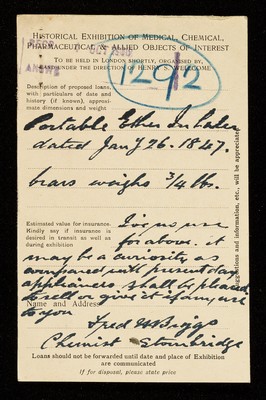 HISTORICAL EXHIBITION OF MEDICAL, CHEMICAL,
PHARMACEUTICAL & ALLIED OBJECTS OF INTEREST
TO BE HELD IN LONDON SHORTLY, ORGANISED BY,
AND UNDER THE DIRECTION OF HENRY S. WELLCOME
1292
Description of proposed loans,
with particulars of date and
history (if known), approxi-
mate dimensions and weight
Portable Ether Inhaler
dated Jany 26. 1847.
bears weighs 3/4 lbs.
Estimated value for insurance.
Kindly say if insurance is
desired in transit as well as
during exhibition
I've no use
for above. it
may be a curiosity as
compared with present day
appliances. shall be pleased
to sell or give it if any use
to you
Name and Address
Fred W Biggs
Chemist Stourbridge
Loans should not be forwarded until date and place of Exhibition
are communicated
If for disposal, please state price
suggestions and information, etc., will be appreciated